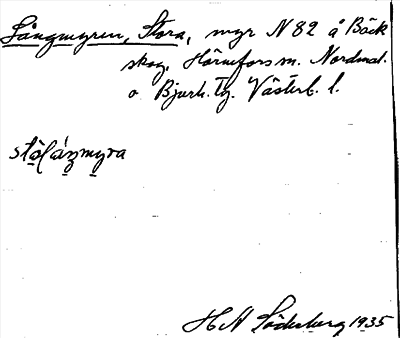 Långmyren, Stora, myr N 82 å Bäck
skog, Hörnefors m. Nordmal.
o Bjurh. Tg. Västerb. l.
stòlázmyra
H N Söderberg 1935